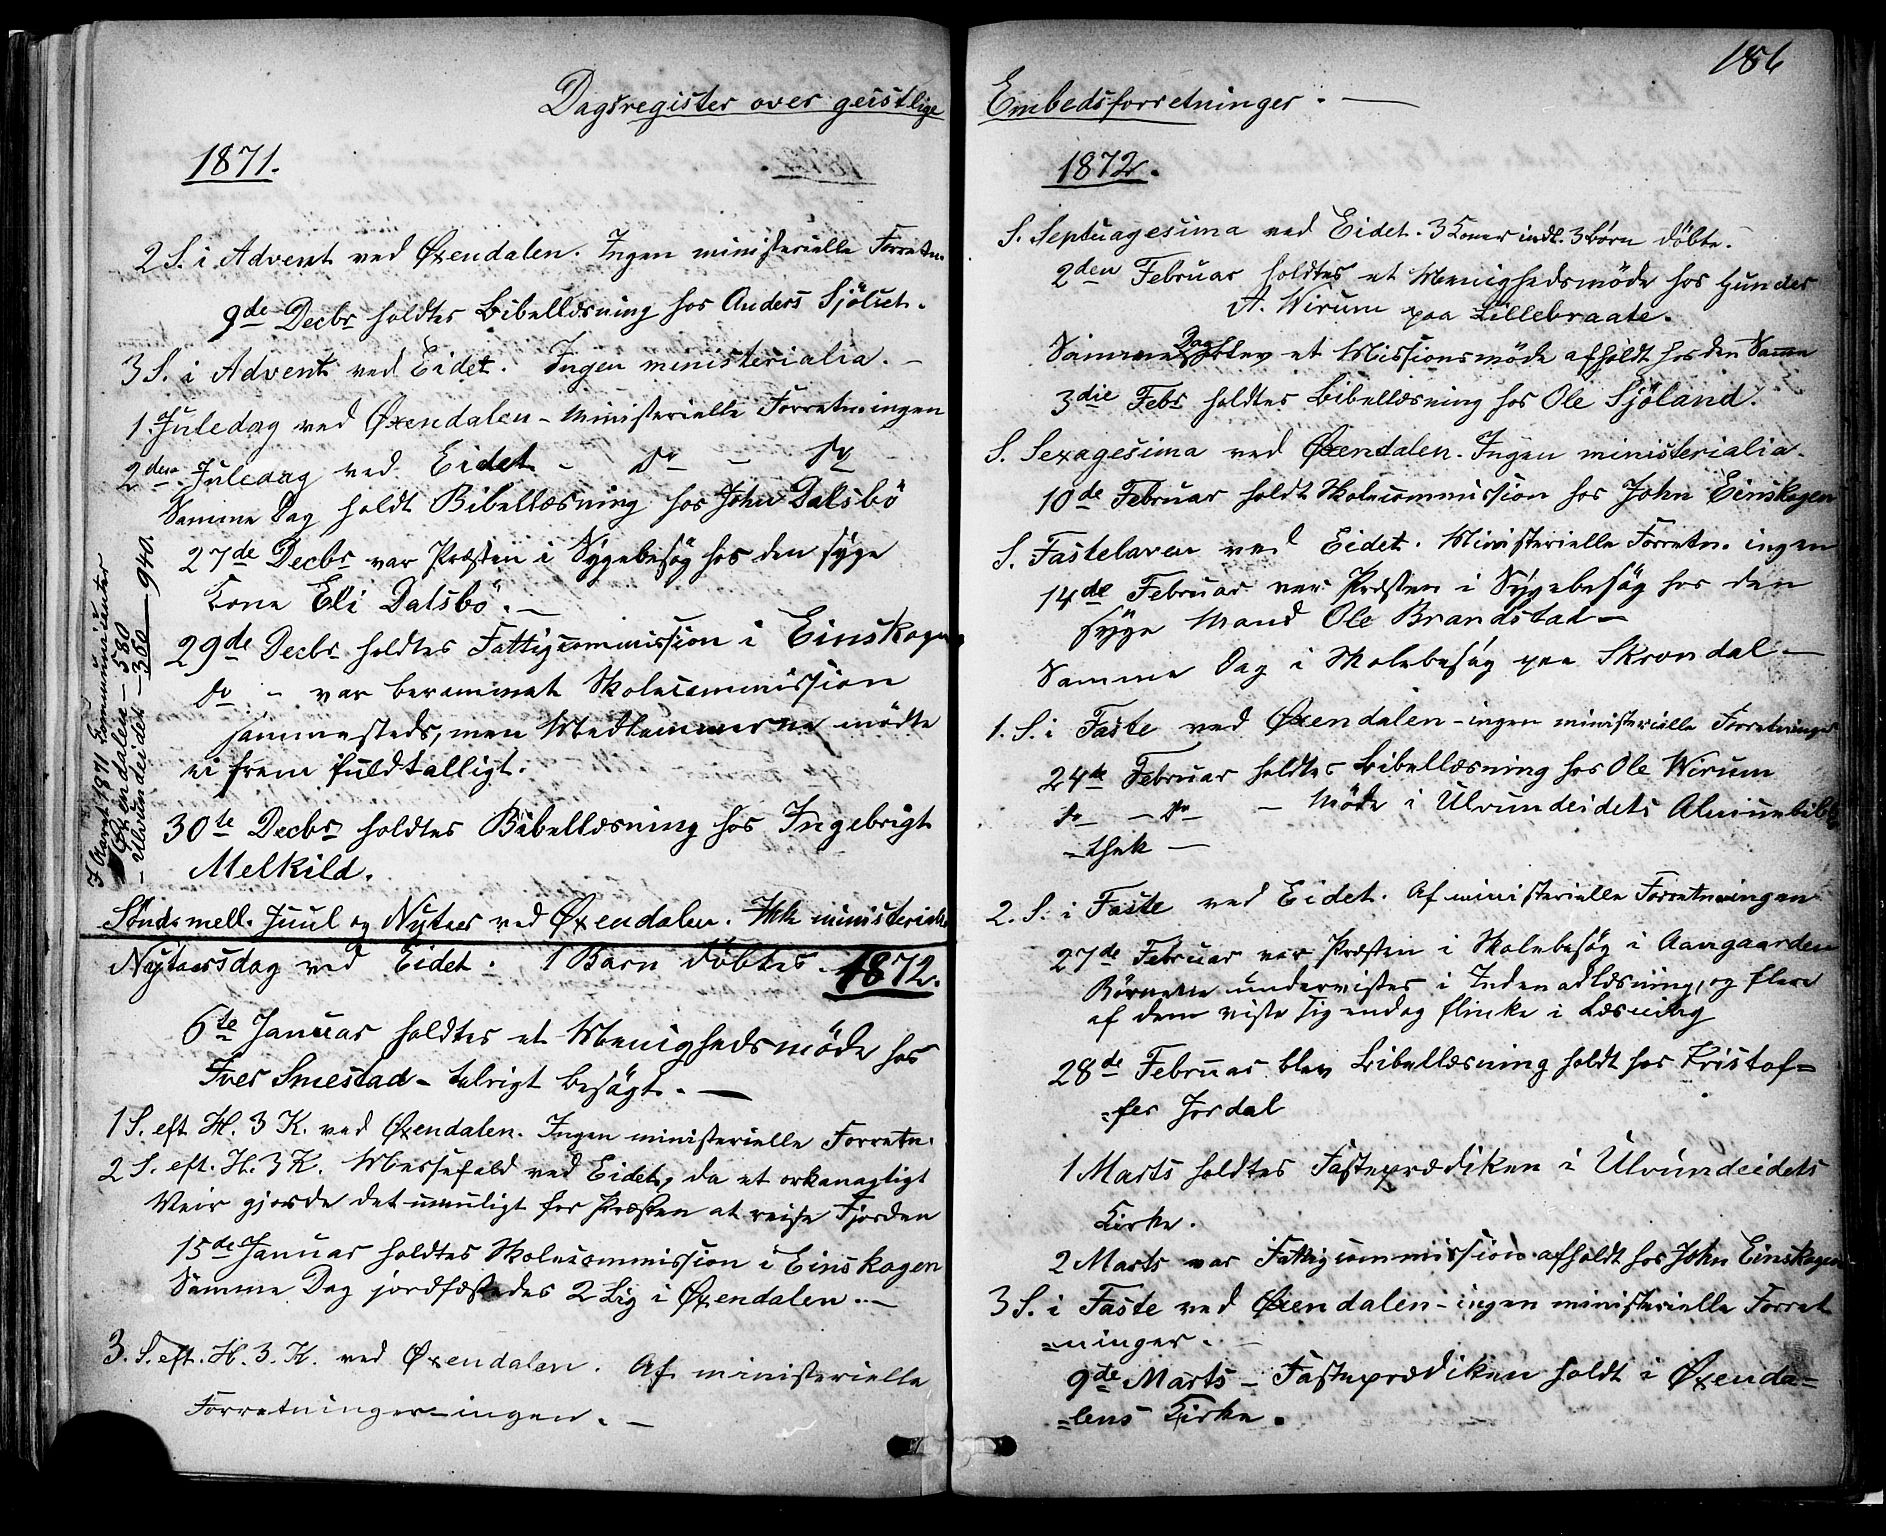 186
Dagsregister over geistlige
1871.
2 S. i Advent ved Øxendalen. Ingen ministerielle Forretn.
9de Decbr holdtes Bibellæsning hos Anders Sjölset.
3 S. i Advent ved Eidet. Ingen ministerialia. –
1. Juledag ved Øxendalen – Ministerielle Forretn. ingen
2den Juledag ved Eidet – do – do
Samme Dag holdt Bibellæsning hos John Dalsbö
27de Decbr var Præsten i Sygebesög hos den syge
Kone Eli Dalsbö. –
29de Decbr holdtes Fattigcommission i Einskagen
do – var berammet Skolecommission
sammesteds, men Medlemmerne mödte
ei frem fuldtalligt.
30te Decbr holdtes Bibellæsning hos Ingebrigt
Melkild.
Sönds mell. Juul og Nytaar ved Øxendalen. Ikke ministerialia
Nytaarsdag ved Eidet. 1 Barn döbtes. 1872.
6te Januar holdtes et Menighedsmöde hos
Iver Smestad – talrigt besögt. –
1 S. eft H. 3 K. ved Øxendalen. Ingen ministerielle Forretn.
2 S. eft. H. 3 K. Messefald ved Eidet, da et orkanagtigt
Veir gjorde det umuligt for Præsten at reise Fjorden
15de Januar holdtes Skolecommission i Einskagen
Samme Dag jordfæstedes 2 Lig i Øxendalen. –
3. S. eft. H. 3. K. ved Øxendalen. Af ministerielle
Forretninger – ingen. –
I Aaret 1871 Communicanter
Øxendalen – 580
– Ulvundeidet – 360 940.
Embedsforretninger. –
1872.
S. Septuagesima ved Eidet. 3 Koner indl. 3 Börn döbte.
2den Februar holdtes et Menighedsmöde hos Gunder
A. Wirum paa Lillebraate.
Samme Dag blev et Missionsmöde afholdt hos den Samme
3die Febr holdtes Bibellæsning hos Ole Sjöland.
S. Sexagesima ved Øxendalen. Ingen ministerialia.
10de Februar holdt Skolecommission hos John Einskagen
S. Fastelaven ved Eidet. Ministerielle Forretn. ingen
14de Februar var Præsten i Sygebesög hos den
syge Mand Ole Brandstad –
Samme Dag i Skolebesög paa Skrondal –
1. S. i Faste ved Øxendalen – ingen ministerielle Forretninger
24de Februar holdtes Bibellæsning hos Ole Wirum
do – do – Möde i Ulvundeidets Almuebiblio
–thek –
2. S. i Faste ved Eidet. Af ministerielle Forretn ingen
27de Februar var Præsten i Skolebesög i Aangaarden
Börnene undervistes i Indenadlæsning, og flere
af dem viste sig endog flinke i Læsning
28de Februar blev Bibellæsning holdt hos Kristof=
=fer Jordal
1 Marts holdtes Fasteprædiken i Ulvundeidets
Kirke.
2 Marts var Fattigcommission afholdt hos John Einskagen
3 S. i Faste ved Øxendalen – ingen ministerielle Forret
=ninger. –
9de Marts – Fasteprædiken holdt i Øxenda=
=lens Kirke.